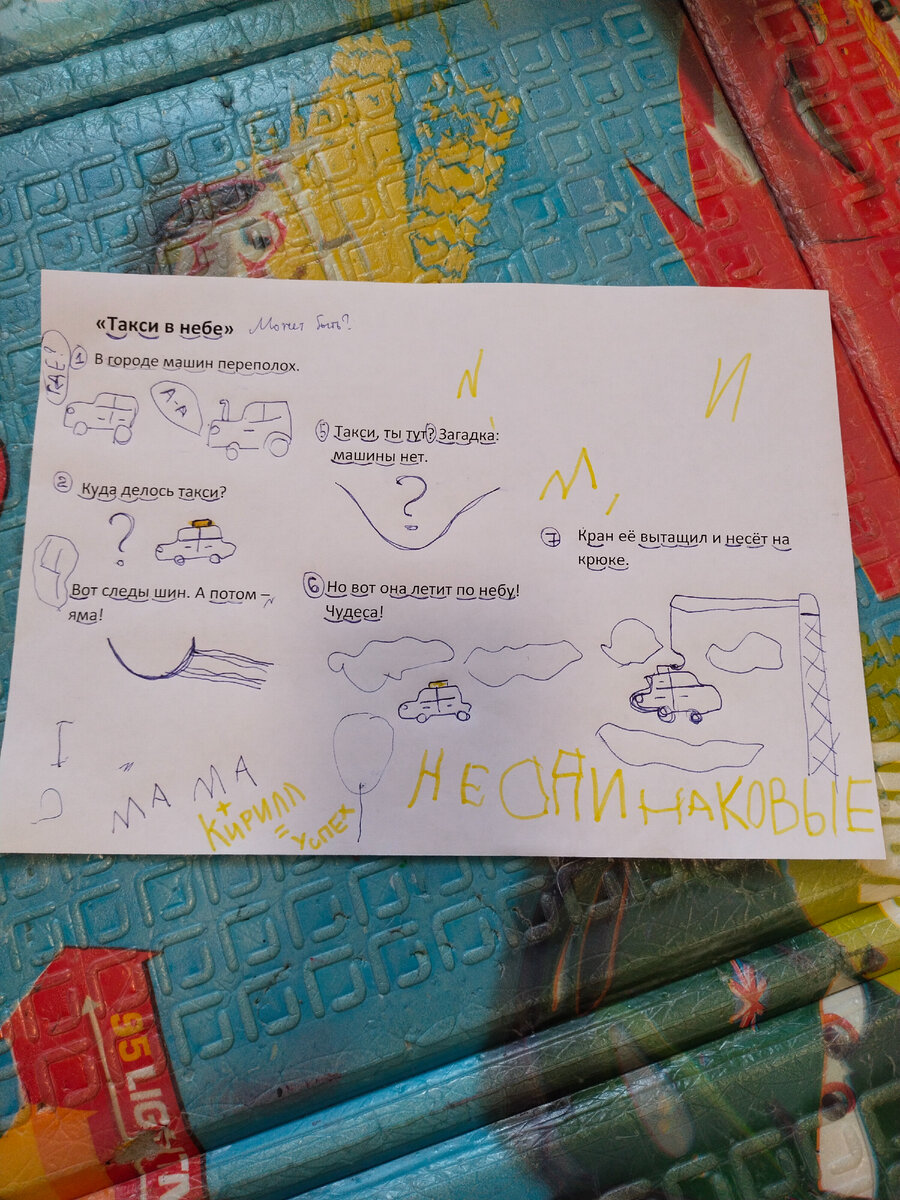 «Такси в небе» Может быть?
ГДЕ?
1 В городе машин переполох.
А-А
2 Куда делось такси?
?
Вот следы шин. А потом –
яма!
5 Такси, ты тут? Загадка:
машины нет.
?
6 Но вот она летит по небу!
Чудеса!
И
М,
7 Кран её вытащил и несёт на
крюке.
МА МА
+
КИРИЛЛ
= УСПЕХ
НЕОДИНАКОВЫЕ
95 LIGHTN